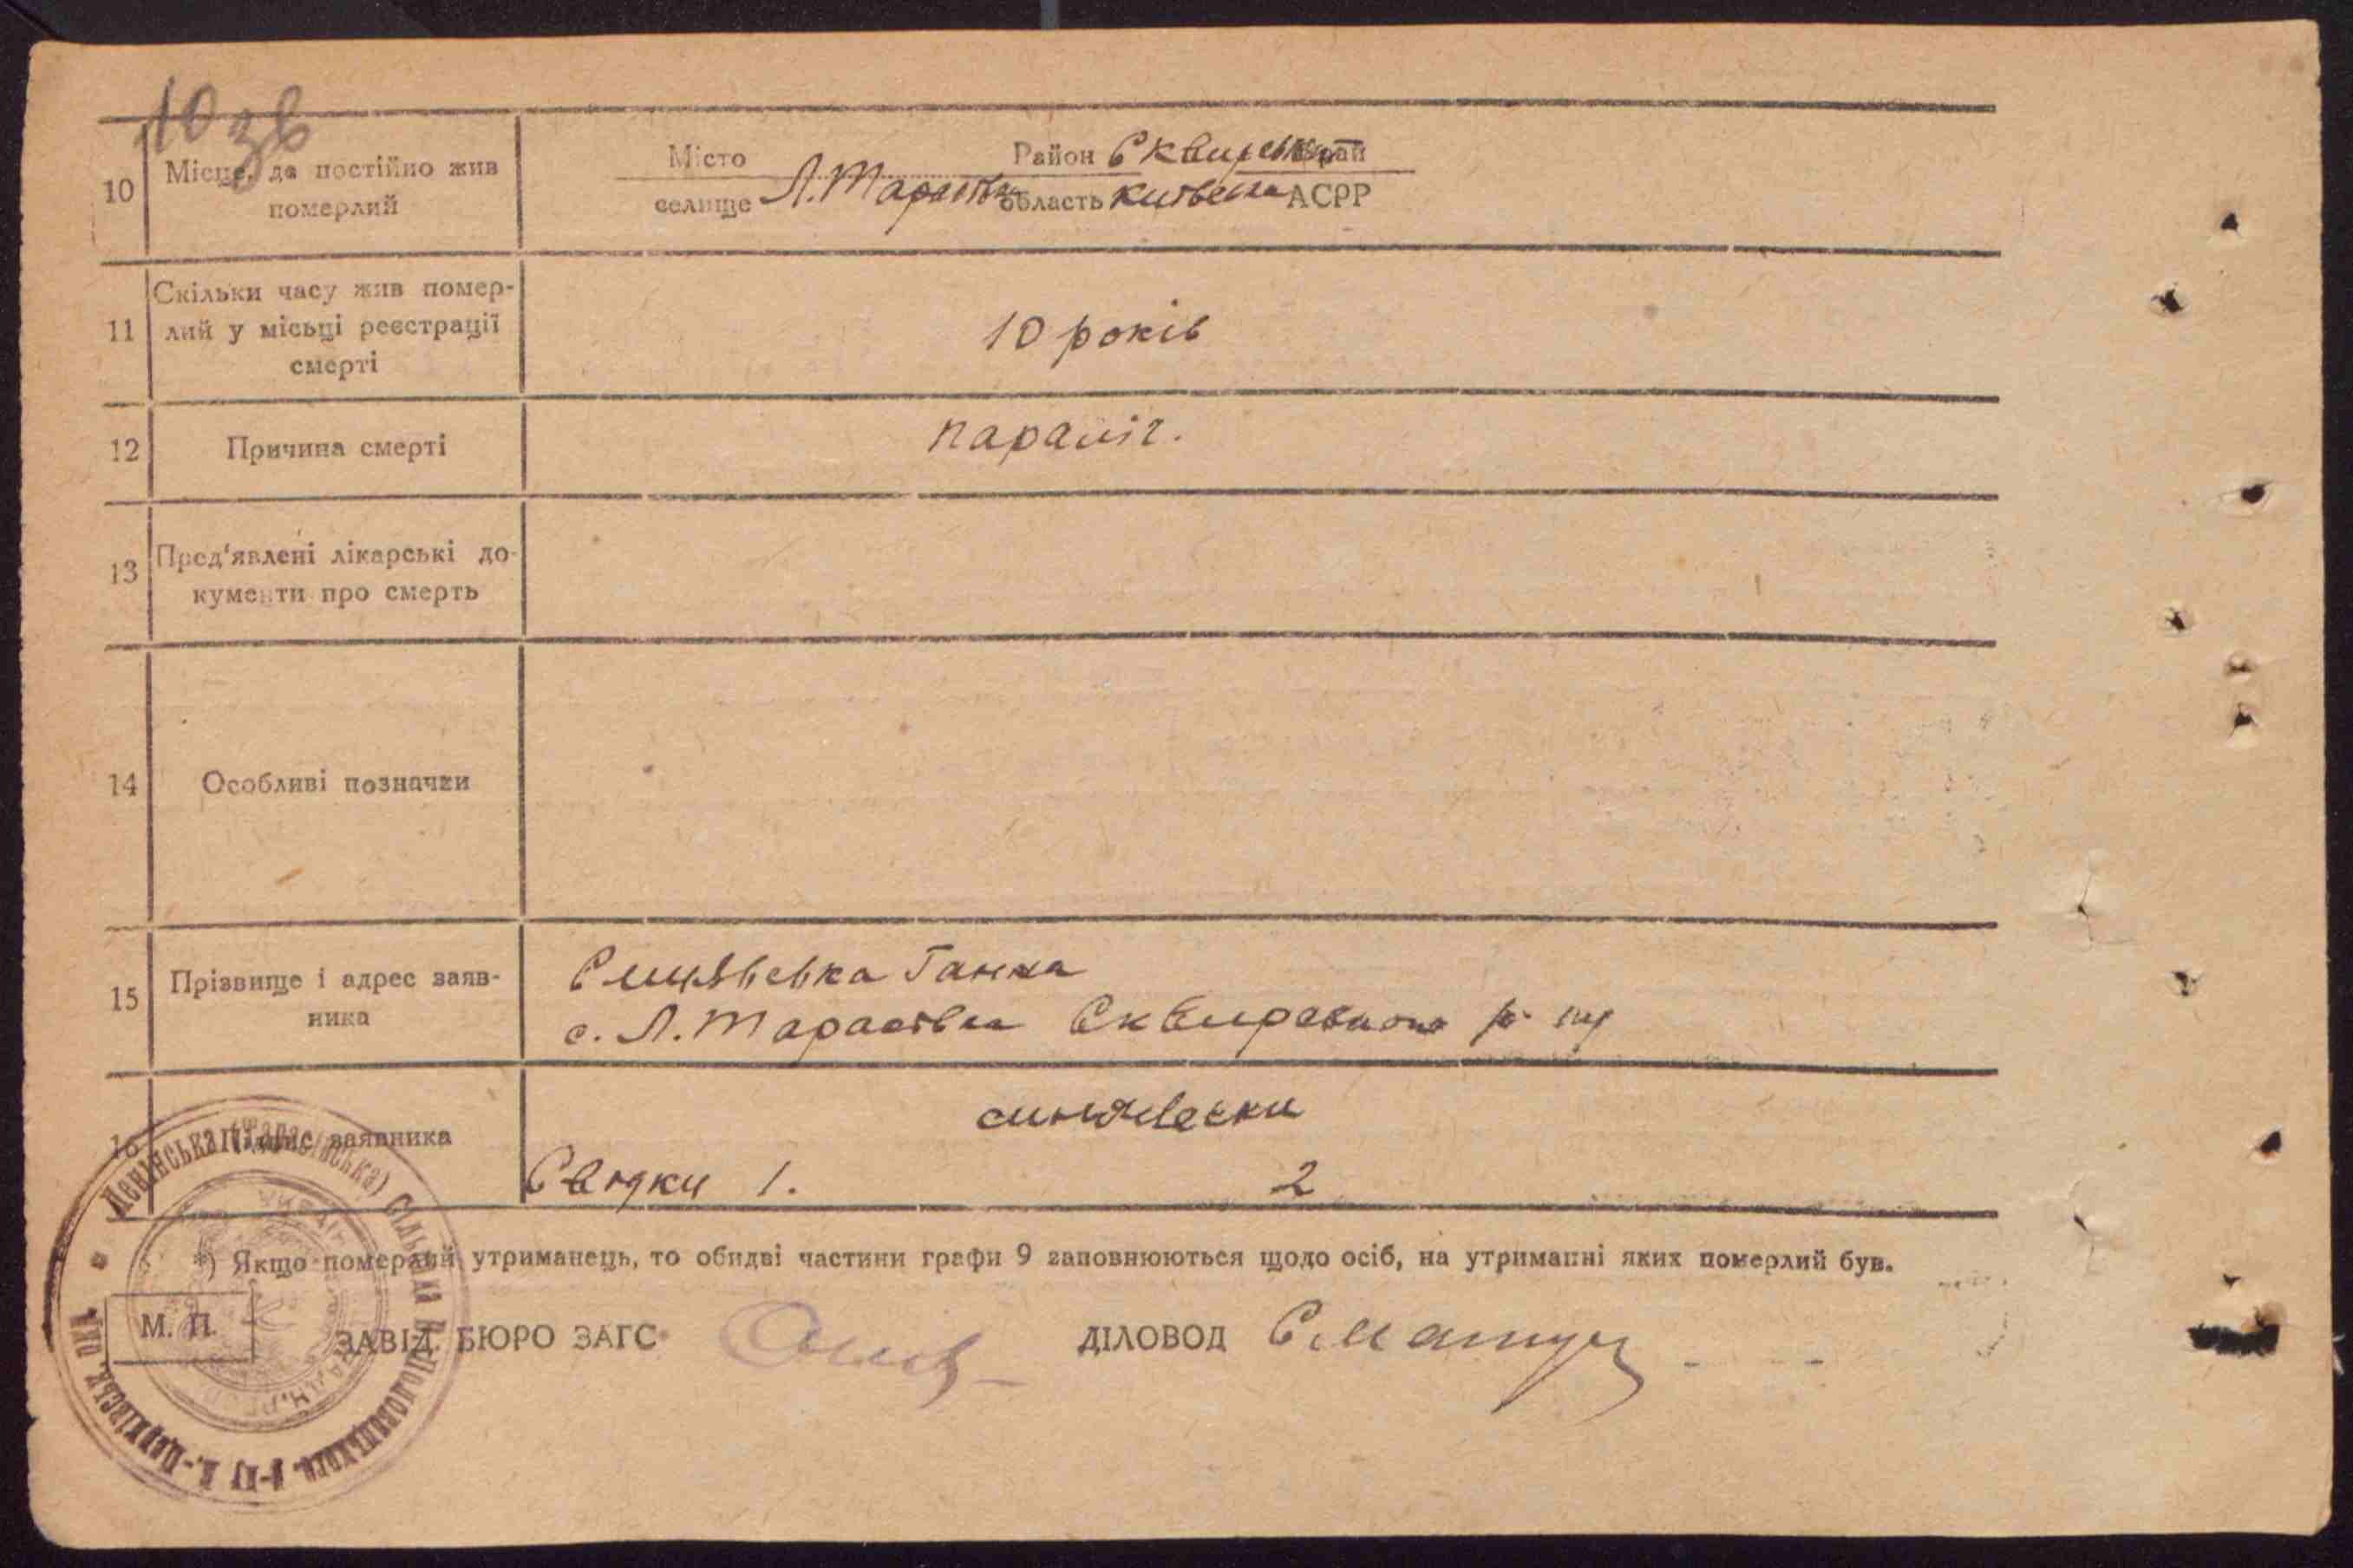 10 зв
10 Місце, де постійно жив померлий
Місто Район Сквирський край
селище Л. Тарасівка область Київська АСРР
11 Скільки часу жив помер-
лий у місьці реєстрації
смерті
10 років
12 Причина смерті
параліг.
13 Пред'явлені лікарські до-
кументи про смерть
14 Особливі позначки
15 Прізвище і адрес заяв-
ника
Ганна
с. Л. Тарасівка Сквирського р-ну
16 Підпис заявника
Свідки 1. 2
*) Якщо померлий утриманець, то обидві частини графи 9 заповнюються щодо осіб, на утриманні яких померлий був.
М. П.
ЗАВІД. БЮРО ЗАГС
ДІЛОВОД
Ленінська (Тарасівська) Сільська